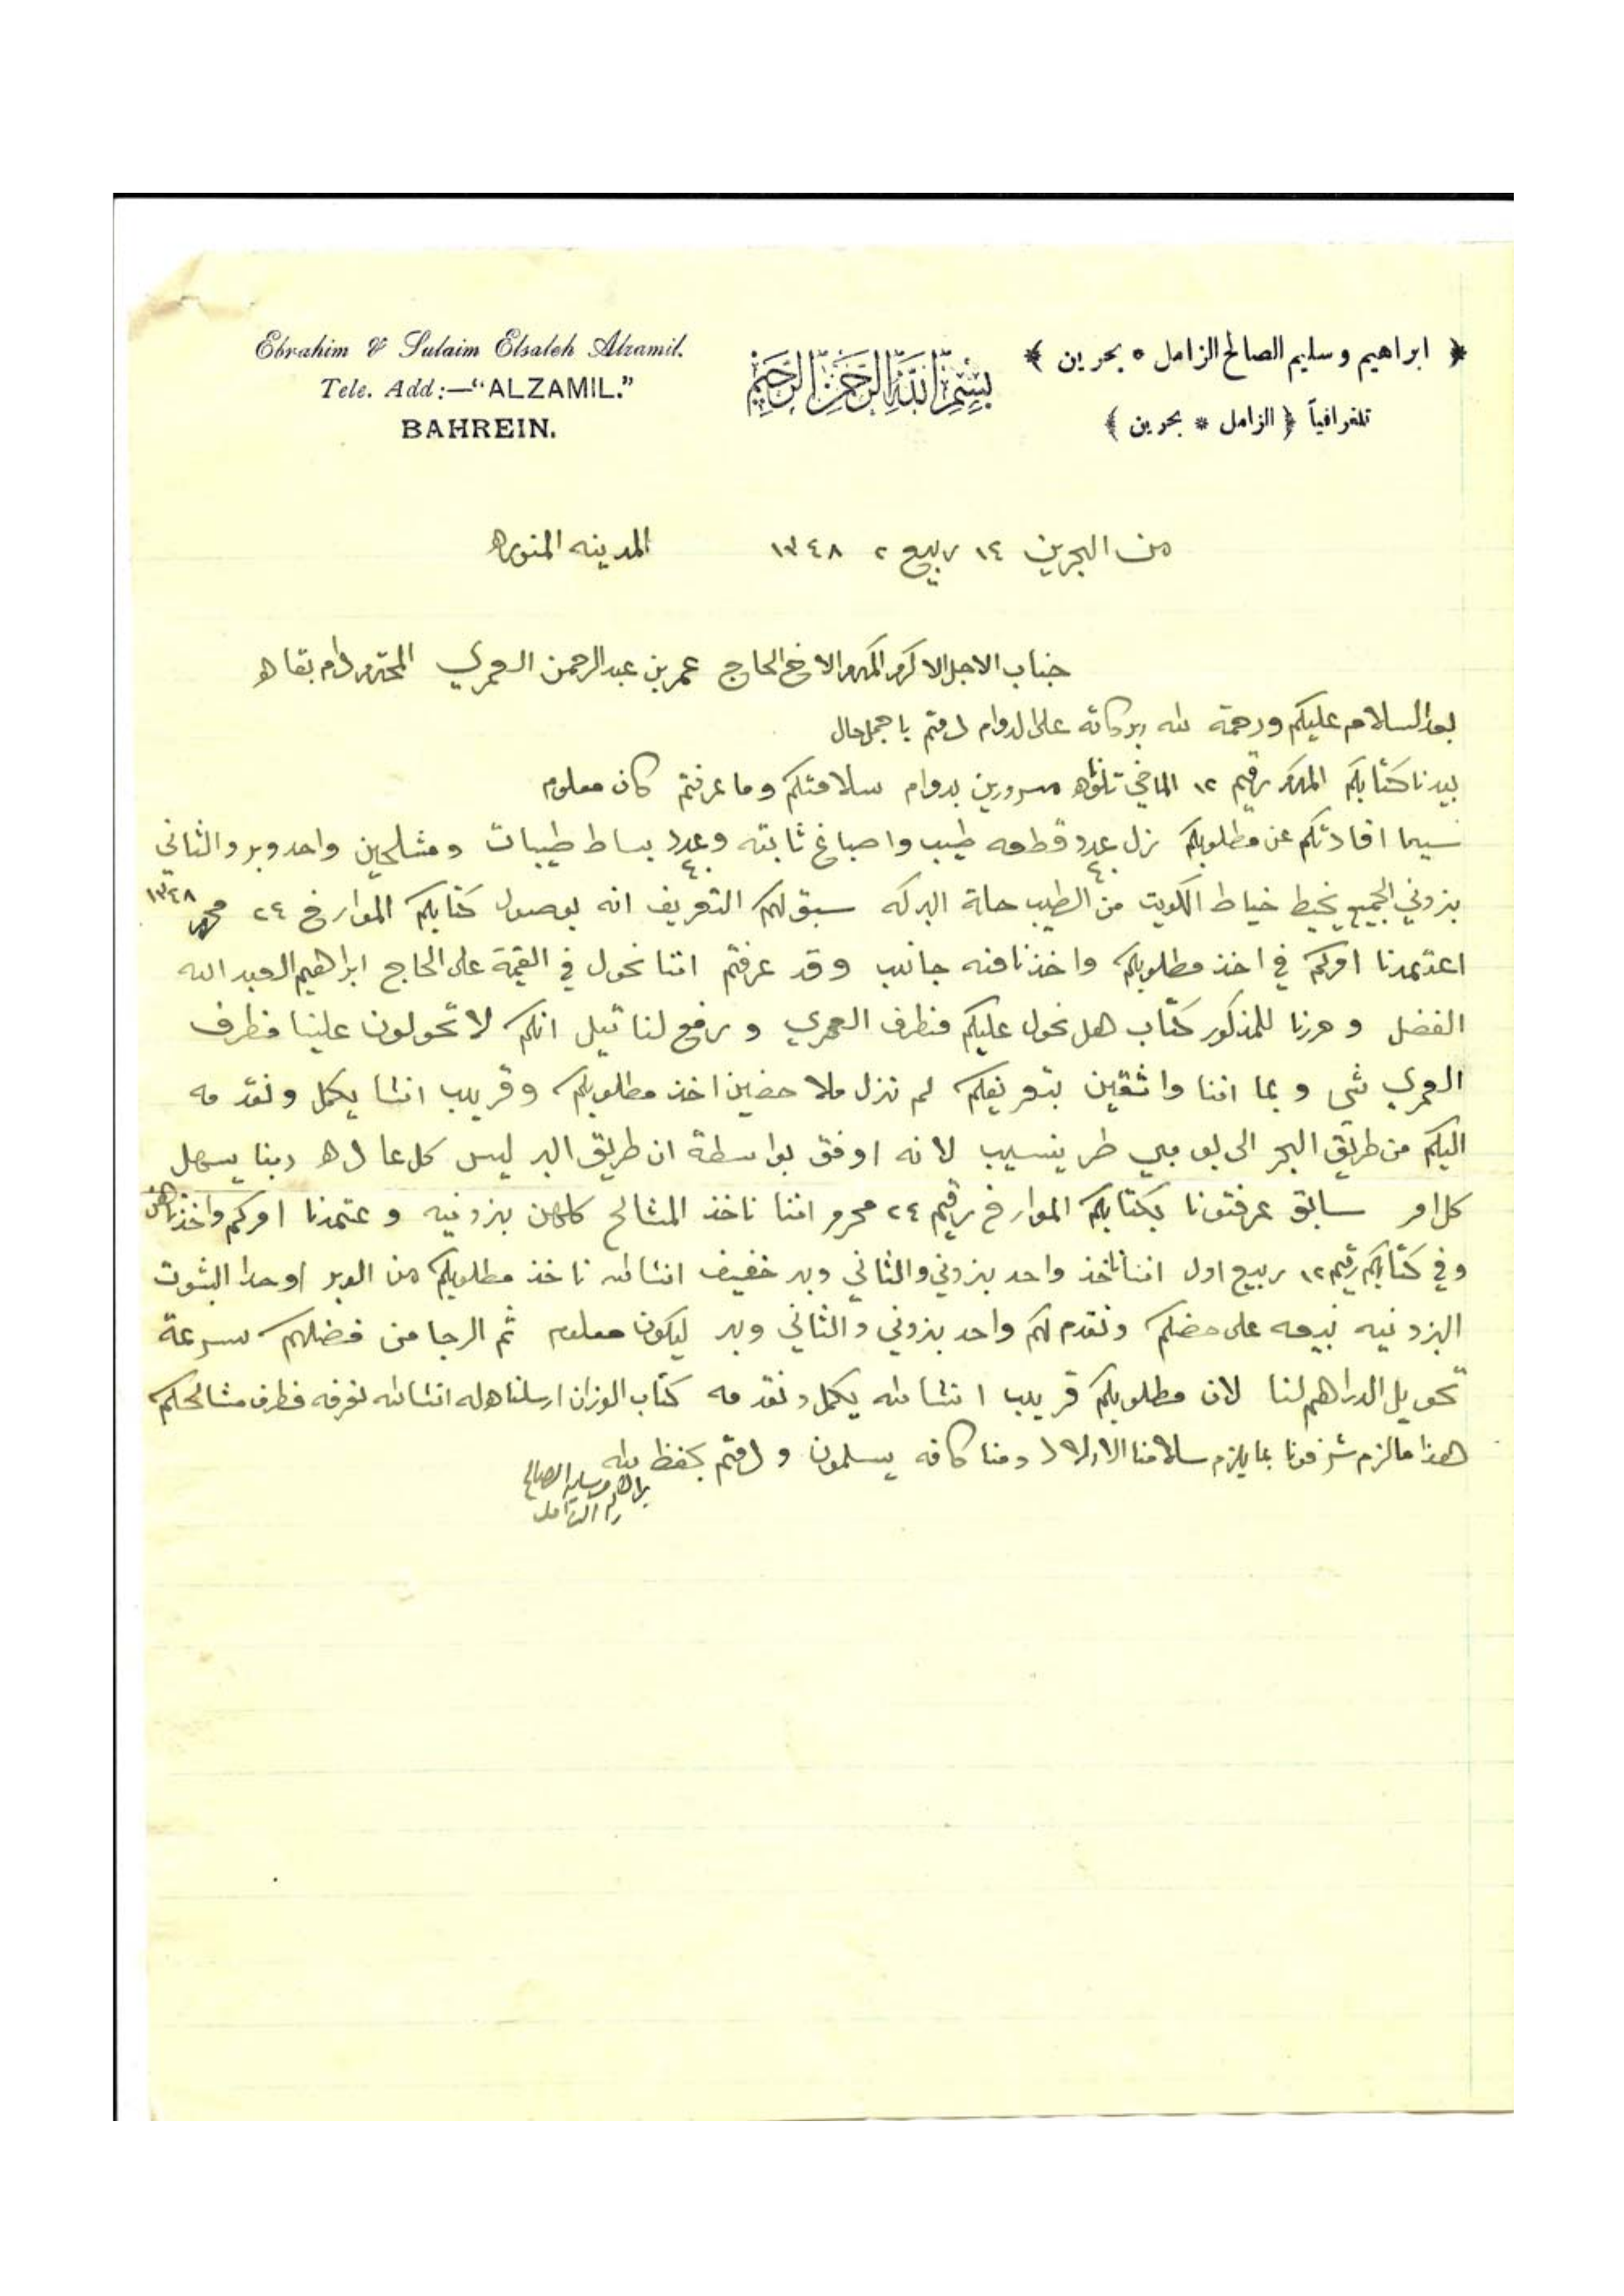 Ebrahim & Sulaim Elsaleh Alzamil.
Tele. Add:—"ALZAMIL."
BAHREIN.
بسم الله الرحمن الرحيم
﴿ ابراهيم وسليم الصالح الزامل * بحرين ﴾
تلغرافياً ﴿ الزامل * بحرين ﴾
من البحرين ١٤ ربيع ٢ ١٣٤٨ المدينه المنوره
جناب الاجل الاكرم المكرم الاخ الحاج عمر بن عبدالرحمن العمري المحترم دام بقاه
بعد السلام عليكم ورحمة الله وبركاته على الدوام دمتم باجمل حال
بيدنا كتابكم المكرم رقيم ١٢ الماضي تلوناه مسرورين بدوام سلامتكم وما عرفتم كان معلوم
سيما افادتكم عن مطلوبكم نزل عدد ٤٠ قطعه طيب واصباغ ثابته وعدد ٤٠ بساط طيبات ومشلحين واحد وبر والثاني
بزوني الجميع يخيط خياط الكويت من الطيب حاة البركه سبق لكم التعريف انه بوصول كتابكم الموارخ ٢٤ محرم ١٣٤٨
اعتمدنا امركم في اخذ مطلوبكم واخذنا منه جانب وقد عرفتم اننا نحول في القيمة على الحاج ابراهيم العبد الله
الفضل وحررنا للمذكور كتاب هل نحول عليكم فطرف العمري ورفع لنا تيل انكم لا تحولون علينا فطرف
العمري شي وبما اننا واثقين بتعريفكم لم نزل ملاحضين اخذ مطلوبكم وقريب انشا يكمل ونقدمه
اليكم من طريق البحر الى بومبي طرينسيب لانه اوفق بواسطة ان طريق البر ليس كل عاده ربنا يسهل
كل امر سابق عرفتونا بكتابكم الموارخ رقيم ٢٤ محرم اننا ناخذ المشالح كلهن بزونيه وعتمدنا امركم واخذناهن
وفي كتابكم رقيم ١٢ ربيع اول اننا ناخذ واحد بزوني والثاني وبر خفيف انشالله ناخذ مطلوبكم من الوبر اوحدا البشوت
البزونيه نبيعه على حضكم ونقدم لكم واحد بزوني والثاني وبر ليكون معلوم ثم الرجا من فضلكم سرعة
تحويل الدراهم لنا لان مطلوبكم قريب انشالله يكمل ونقدمه كتاب الوزان ارسلناه له انشالله نعرفه فطرف مشالحكم
هذا مالزم شرفونا بما يلزم سلامنا الاولاد ومنا كافه يسلمون ودمتم بحفظ الله
ابراهيم وسليم الصالح
الزامل